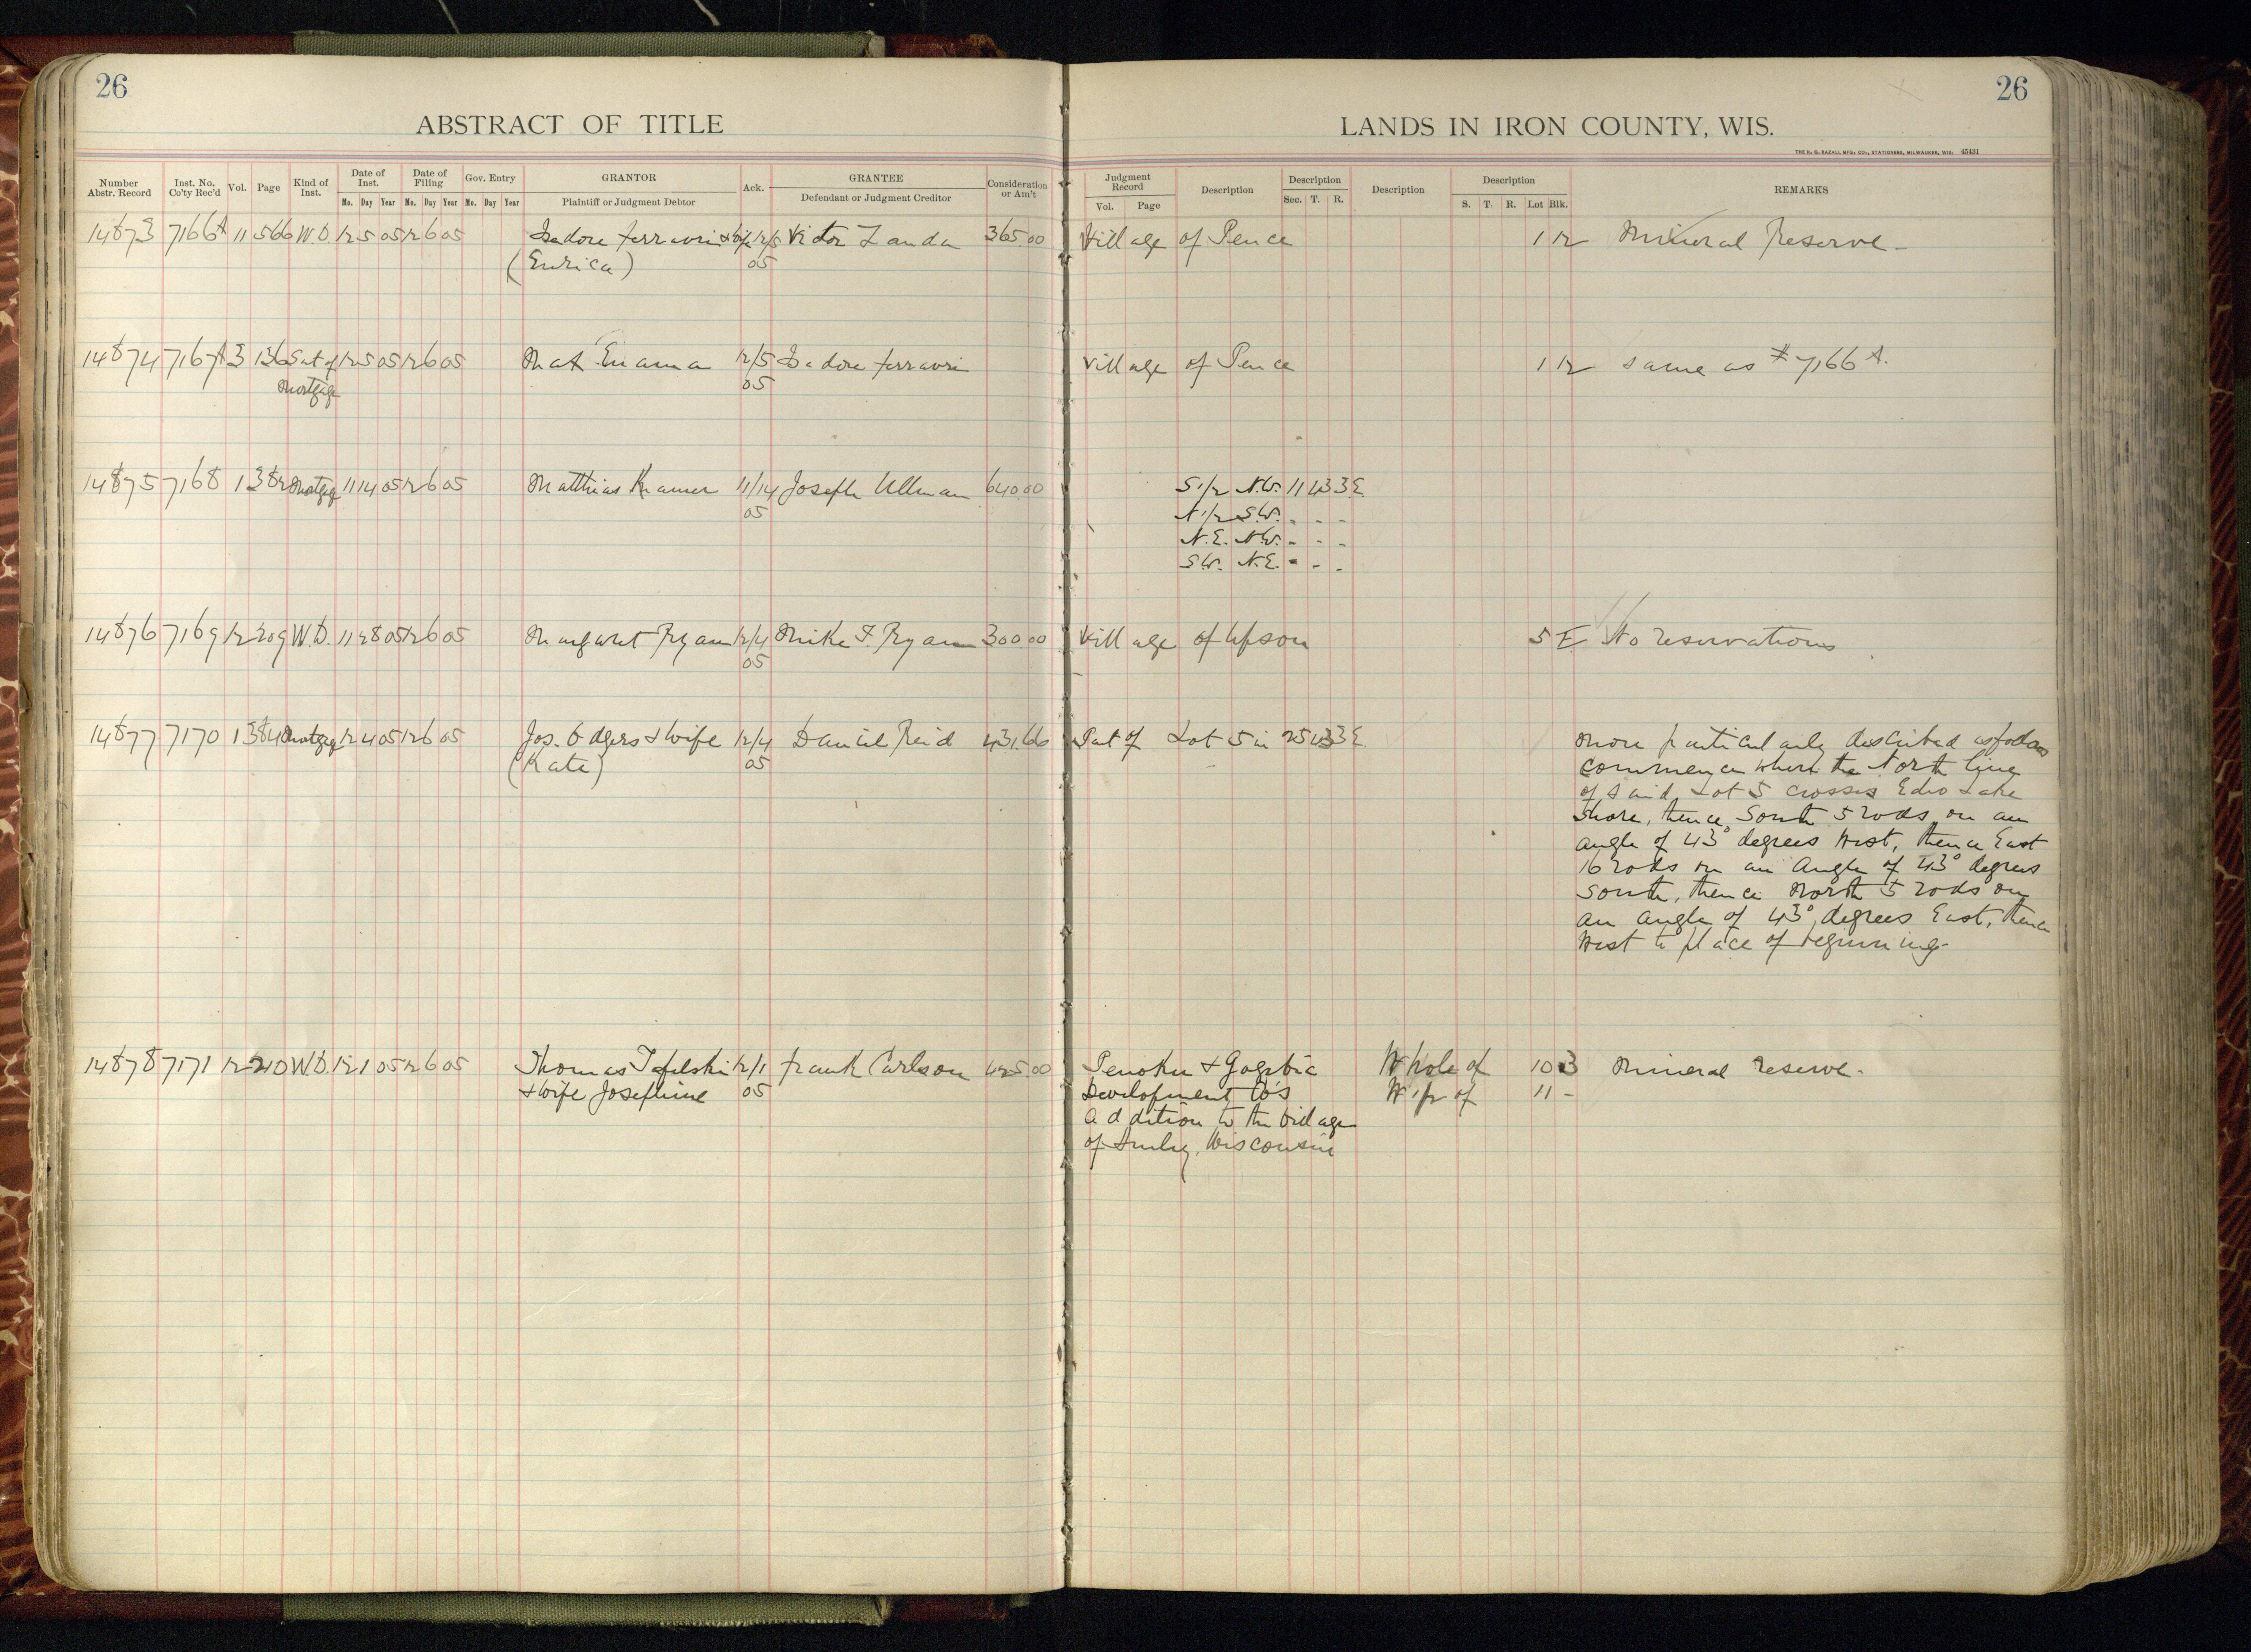 26
ABSTRACT OF TITLE
Number Abstr. Record
Inst. No. Co'ty Rec'd
Vol.
Page
Kind of Inst.
Date of Inst.
Mo. Day Year
Date of Filing
Mo. Day Year
Gov. Entry
Mo. Day Year
GRANTOR
Plaintiff or Judgment Debtor
Ack.
GRANTEE
Defendant or Judgment Creditor
Consideration or Am't
14873 7166A 11 566 W.D. 12 5 05 12 6 05 Isadore Ferravri & wife 12/5 Victor Landa 365.00
(Enrica) 05
14874 7167A 3 136 Sat of 12 5 05 12 6 05 Mat 12/5 Isadore Ferravri
Mortgage 05
14875 7168 1 382 Mortgage 11 14 05 12 6 05 Matthias Kramer 11/14 Joseph Ullman 640.00
05
14876 7169 12 209 W.D. 11 28 05 12 6 05 Margaret Ryan 12/4 Mike F. Ryan 300.00
05
14877 7170 1 384 Mortgage 12 4 05 12 6 05 Jos. Odgers & wife 12/4 Daniel Reid 431.66
(Kate) 05
14878 7171 12 210 W.D. 12 1 05 12 6 05 Thomas Tafelski 12/1 Frank Carlson 425.00
& wife Josephine 05
26
LANDS IN IRON COUNTY, WIS.
THE H. G. RAZALL MFG. CO., STATIONERS, MILWAUKEE, WIS. 45431
Judgment Record
Vol. Page
Description
Description
Sec. T. R.
Description
Description
S. T. R. Lot Blk.
REMARKS
Village of Pence 1 12 Mineral Reserve-
Village of Pence 1 12 same as #7166 A.
S 1/2 N.W. 11 43 3E.
N 1/2 S.W. " - -
N.E. N.W. - - -
S.W. N.E. " - -
Village of Upson 5 E No reservations
Part of Lot 5 in 25 43 3E More particularly described as follows
commence where the North line
of said Lot 5 crosses Echo Lake
Shore, thence South 5 rods on an
angle of 43° degrees West, thence East
16 rods on an Angle of 43° degrees
South, thence North 5 rods on
an angle of 43° degrees East, thence
West to place of beginning-
Penokee & Gogebic Whole of 10 3 Mineral reserve-
Development Co's W 1/2 of 11 -
Addition to the Village
of Hurley, Wisconsin